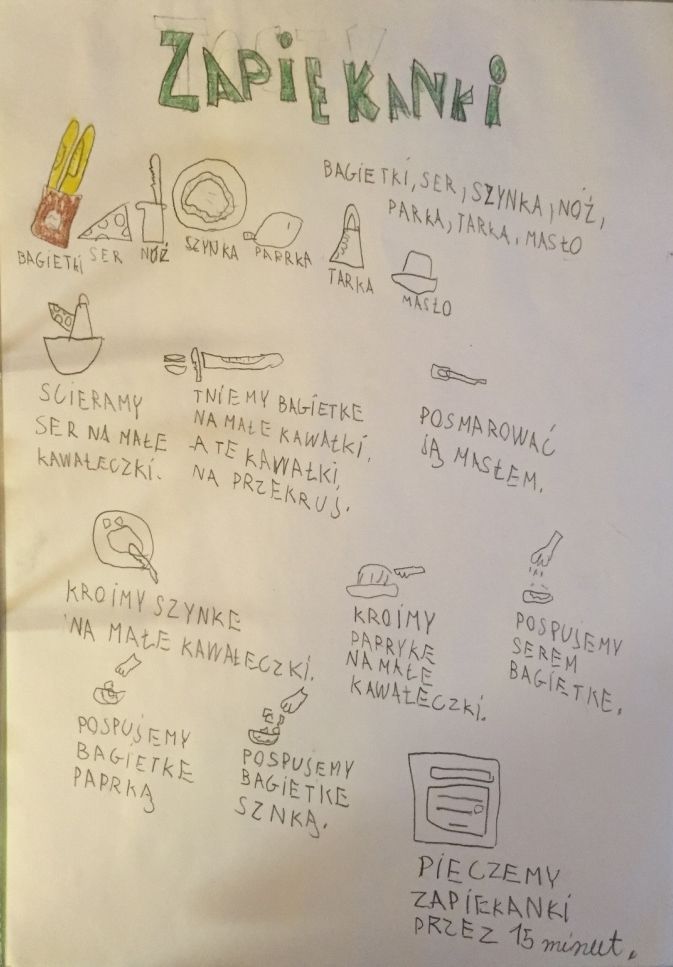 ZAPIEKANKI
BAGIETKI, SER, SZYNKA, NÓŻ,
PARKA, TARKA, MASŁO
BAGIETKI
SER
NÓŻ
SZYNKA
PAPRKA
TARKA
MASŁO
SCIERAMY
SER NA MAŁE
KAWAŁECZKI.
TNIEMY BAGIETKE
NA MAŁE KAWAŁKI.
A TE KAWAŁKI,
NA PRZEKRUJ.
POSMAROWAĆ
JĄ MASŁEM.
KROIMY SZYNKE
NA MAŁE KAWAŁECZKI.
KROIMY
PAPRYKE
NA MAŁE
KAWAŁECZKI.
POSPUJEMY
SEREM
BAGIETKE.
POSPUJEMY
BAGIETKE
PAPRKĄ
POSPUJEMY
BAGIETKE
SZNKĄ.
PIECZEMY
ZAPIEKANKI
PRZEZ 15 minut.